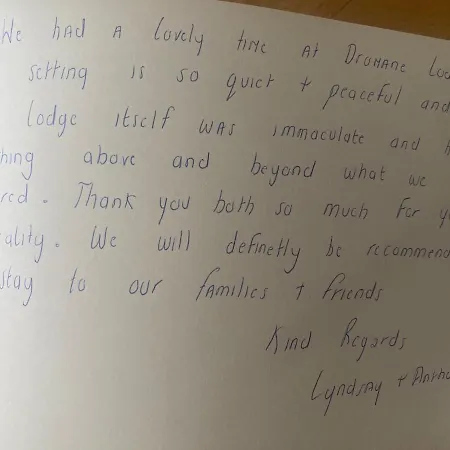 We had a lovely time at Dromane Lo
setting is so quiet + peaceful and
lodge itself was immaculate and h
hing above and beyond what we
red. Thank you both so much for y
ality. We will definetly be recommend
stay to our families + friends
Kind Regards
Lyndsay + Antho